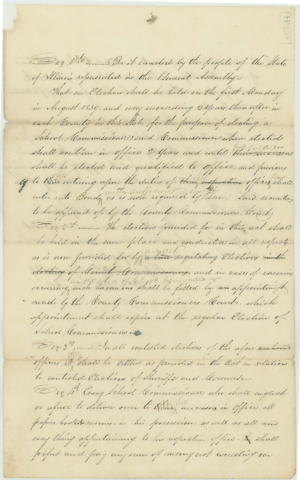 Sec 1st Be it enacted by the people of the State
of Illinois represented in the General Assembly
That an Election shall be held on the first Monday
in August 1839, and every succeeding 2 years thereafter in
each County in this State for the purpose of electing a
School Commissioner, said Commissioner when elected
shall continue in office 2 Years and until
shall be elected and qualified to office, and previous
to entering upon the duties of office shall
enter into Bonds, as is now required by Law. Said
to be approved of by the County Commissioners Court
Sec 2nd The election provided for in this act shall
be held in the same place and conducted in all respects
as is now provided for by regulating Elections in the
electing of County Commissioners and in cases of vacancies
occurring, such vacancies shall be filled by an appointment
made by the County Commissioners Court, which
appointment shall expire at the regular Election of
School Commissioners
Sec 3d In all contested elections of the above mentioned
officers shall be settled as provided in the Act in relation
to contested Elections of Sheriffs and Coroners
Sec 4th Every School Commissioner who shall neglect
or refuse to deliver over to successors in office all
papers books in his possession as well as all and
every thing appertaining to his office shall
forfeit and pay any sum of money not exceeding one